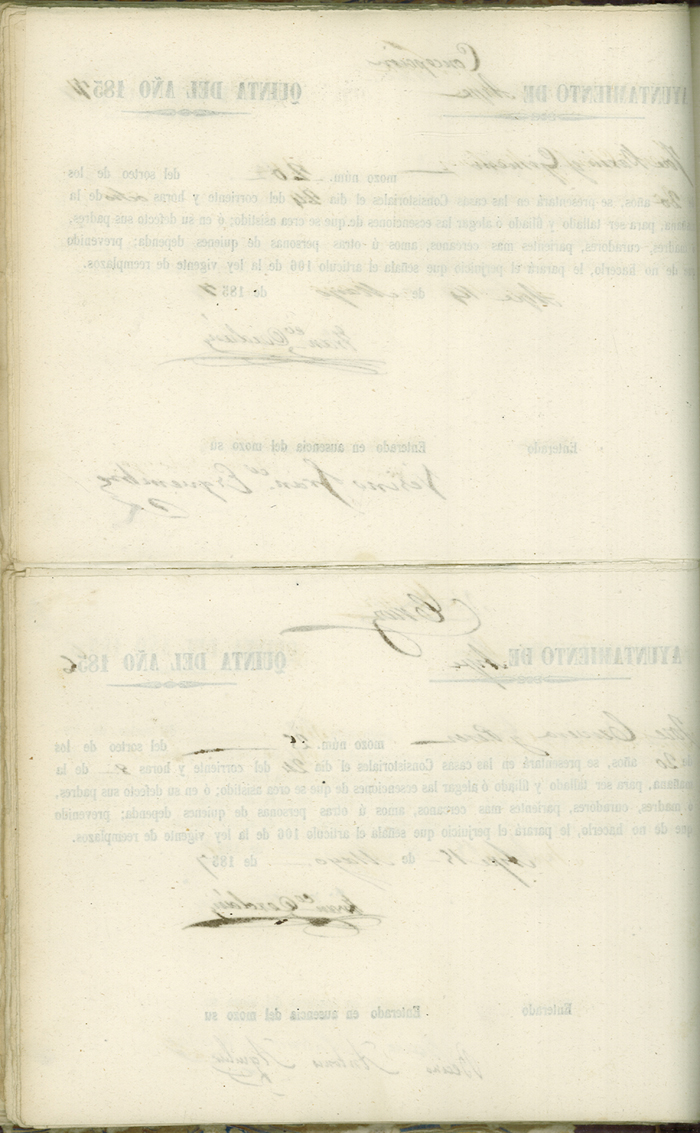 Concepcion
AYUNTAMIENTO DE Aspe QUINTA DEL AÑO 1857
José y mozo núm. 26 del sorteo de los
de 20 años, se presentará en las casas Consistoriales el dia 24 del corriente y horas ocho de la
mañana, para ser tallado y filiado ó alegar las ecsenciones de que se crea asistido; ó en su defecto sus padres,
madres, curadores, parientes mas cercanos, amos ú otras personas de quienes dependa; prevenido
que de no hacerlo, le parará el perjuicio que señala el articulo 106 de la ley vigente de reemplazos.
Aspe 19 de Mayo de 1857
Enterado Enterado en ausencia del mozo su
Vesino Fran.co Esquembre
Cruz
AYUNTAMIENTO DE Aspe QUINTA DEL AÑO 1856
José y mozo núm. 25 del sorteo de los
de 20 años, se presentará en las casas Consistoriales el dia 24 del corriente y horas 8 de la
mañana, para ser tallado y filiado ó alegar las ecsenciones de que se crea asistido; ó en su defecto sus padres,
ó madres, curadores, parientes mas cercanos, amos ú otras personas de quienes dependa; prevenido
que de no hacerlo, le parará el perjuicio que señala el articulo 106 de la ley vigente de reemplazos.
Aspe 18 de Mayo de 1857
Enterado Enterado en ausencia del mozo su
Antonio